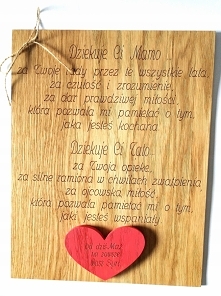 Dziękuję Ci Mamo
za Twoje rady przez te wszystkie lata,
za czułość i zrozumienie,
za dar prawdziwej miłości,
która pozwala mi pamiętać o tym,
jaka jesteś kochana.
Dziękuję Ci Tato
za Twoją opiekę,
za silne ramiona w chwilach zwątpienia
za ojcowską miłość,
która pozwala pamiętać mi o tym,
jaki jesteś wspaniały.
na zawsze